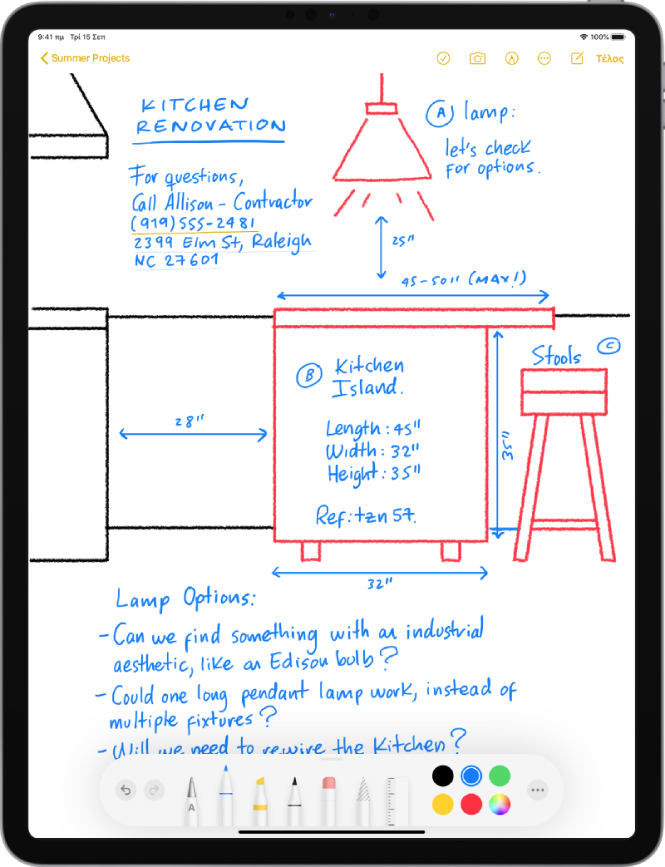 9:41 πμ Τρί 15 Σεπ
100%
Summer Projects
Τέλος
KITCHEN
RENOVATION
For questions,
Call Allison - Contractor
(919)555-2481
2399 Elm St, Raleigh
NC 27601
A lamp:
let's check
for options.
25"
45-50" (MAX!)
B Kitchen
Island.
Length: 45"
Width: 32"
Height: 35"
Ref: tzn 57.
28"
35"
Stools C
32"
Lamp Options:
- Can we find something with an industrial
aesthetic, like an Edison bulb?
- Could one long pendant lamp work, instead of
multiple fixtures?
- Will we need to rewire the Kitchen?
A